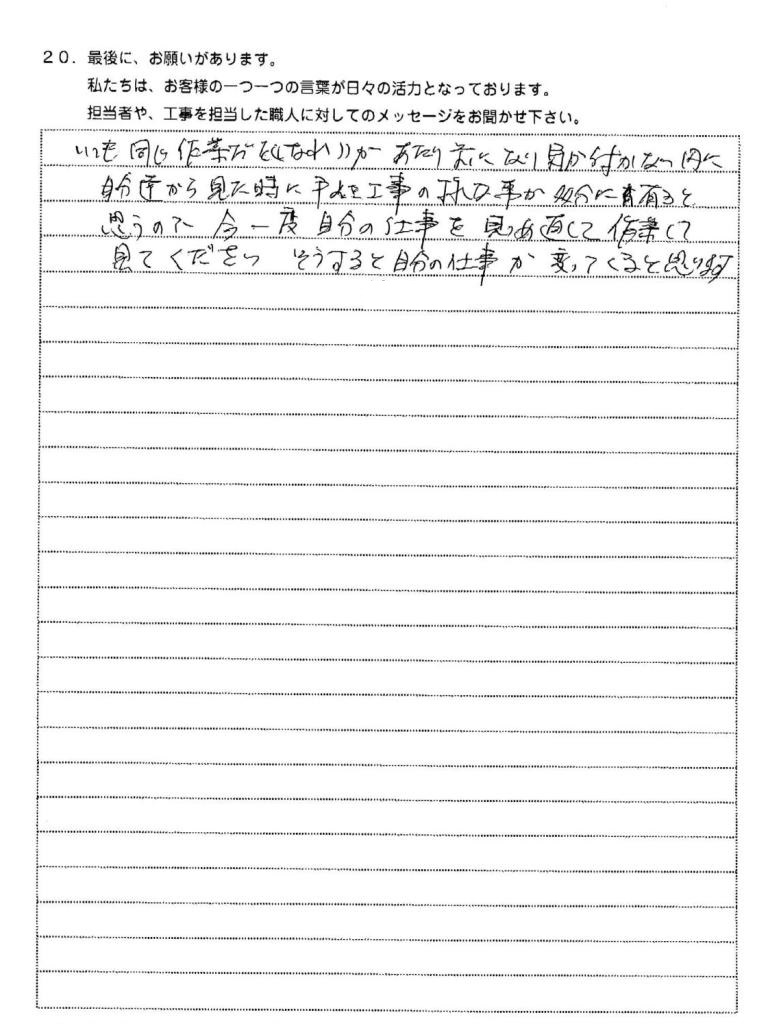 20. 最後に、お願いがあります。
私たちは、お客様の一つ一つの言葉が日々の活力となっております。
担当者や、工事を担当した職人に対してのメッセージをお聞かせ下さい。
いつも同じ作業だと(なれ))が あたり前になり 気が付かない内に
自分達から見た時に 手抜き工事の様な事が 多分に有ると
思うので 今一度 自分の仕事を 見つめ直して 作業して
見てください そうすると自分の仕事が 変ってくると思います